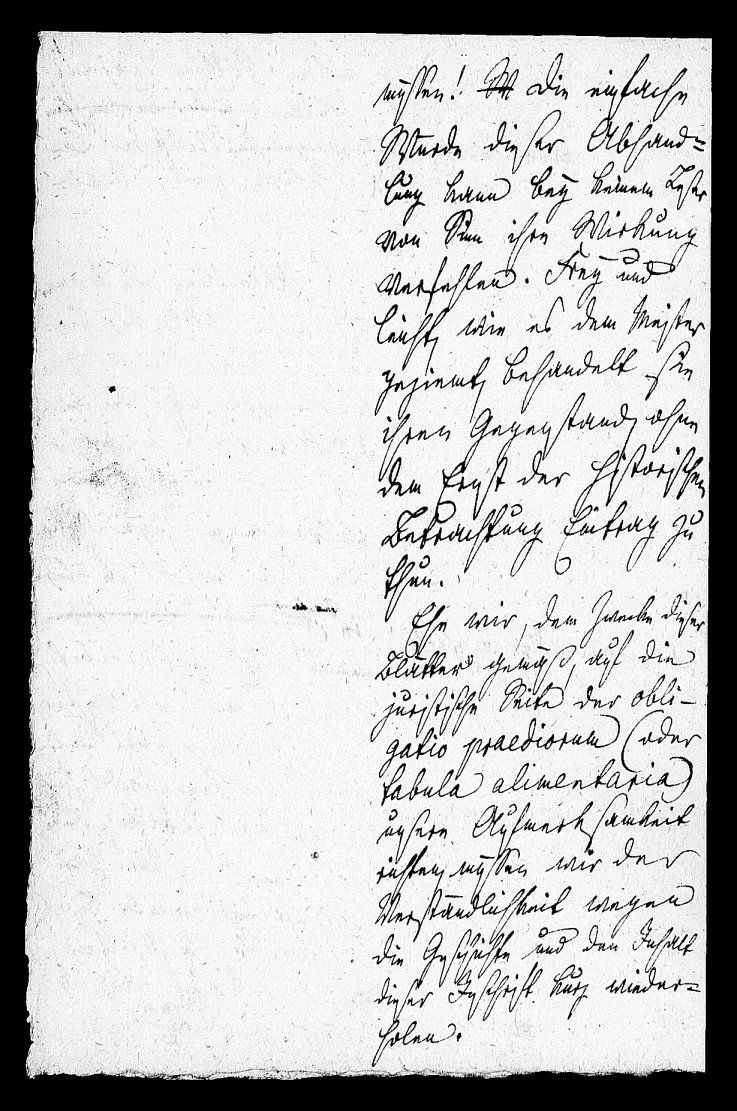 müssen! Die einfache
Würde dieser Abhand=
lung kann bey keinem Leser
von Sinn ihre Wirkung
verfehlen. Frey und
leicht, wie es dem Meister
geziemt, behandelt sie
ihren Gegenstand, ohne
dem Ernst der historischen
Betrachtung Eintrag zu
thun.
Ehe wir, dem Zwecke dieser
Blätter gemäß, auf die
juristische Seite der obli-
gatio praediorum (oder
tabula alimentaria)
unsere Aufmerksamkeit
richten, müssen wir der
Verständlichkeit wegen
die Geschichte und den Inhalt
dieser Inschrift kurz wieder=
holen.